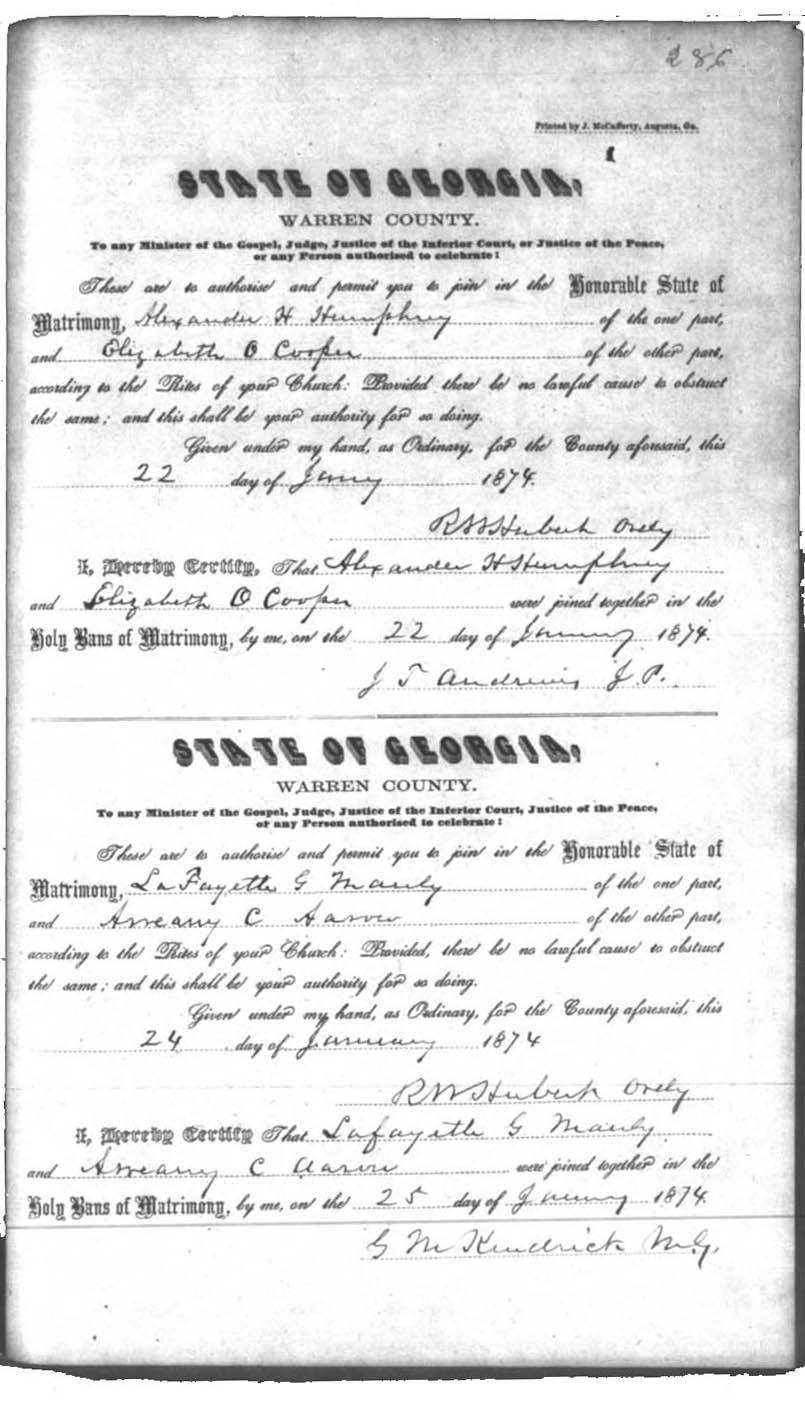 286
Printed by J. McCafferty, Augusta, Ga.
STATE OF GEORGIA,
WARREN COUNTY.
To any Minister of the Gospel, Judge, Justice of the Inferior Court, or Justice of the Peace,
or any Person authorised to celebrate:
These are to authorise and permit you to join in the Honorable State of
Matrimony, Alexander H Humphrey of the one part,
and Elizabeth O Cooper of the other part,
according to the Rites of your Church: Provided there be no lawful cause to obstruct
the same; and this shall be your authority for so doing.
Given under my hand, as Ordinary, for the County aforesaid, this
22 day of Jany 1874.
R W Hubert Ordy
I, Hereby Certify, That Alexander H Humphrey
and Elizabeth O Cooper were joined together in the
Holy Bans of Matrimony, by me, on the 22 day of January 1874.
J T Andrews J.P.
STATE OF GEORGIA,
WARREN COUNTY.
To any Minister of the Gospel, Judge, Justice of the Inferior Court, Justice of the Peace,
or any Person authorised to celebrate:
These are to authorise and permit you to join in the Honorable State of
Matrimony, LaFayette G Manly of the one part,
and C Aaron of the other part,
according to the Rites of your Church: Provided, there be no lawful cause to obstruct
the same; and this shall be your authority for so doing.
Given under my hand, as Ordinary, for the County aforesaid, this
24 day of January 1874
R W Hubert Ordy
I, Hereby Certify That Lafayette G Manly
and C Aaron were joined together in the
Holy Bans of Matrimony, by me, on the 25 day of January 1874.
G M Kendrick M.G.